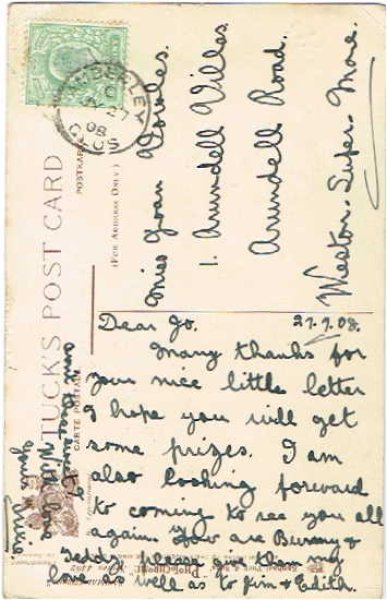 AMBERLEY
27
08
GLOS
TUCK'S POST CARD
CARTE POSTALE
POSTKARTE
(FOR ADDRESS ONLY)
Miss Joan
1. Arundell Villas
Arundell Road.
Weston-Super-Mare.
27.7.08.
Dear Jo.
Many thanks for
your nice little letter
I hope you will get
some prizes. I am
also looking forward
to coming to see you all
again. How are Bunny &
Teddy, please give this my
love as well as to Jim & Edith.
With love